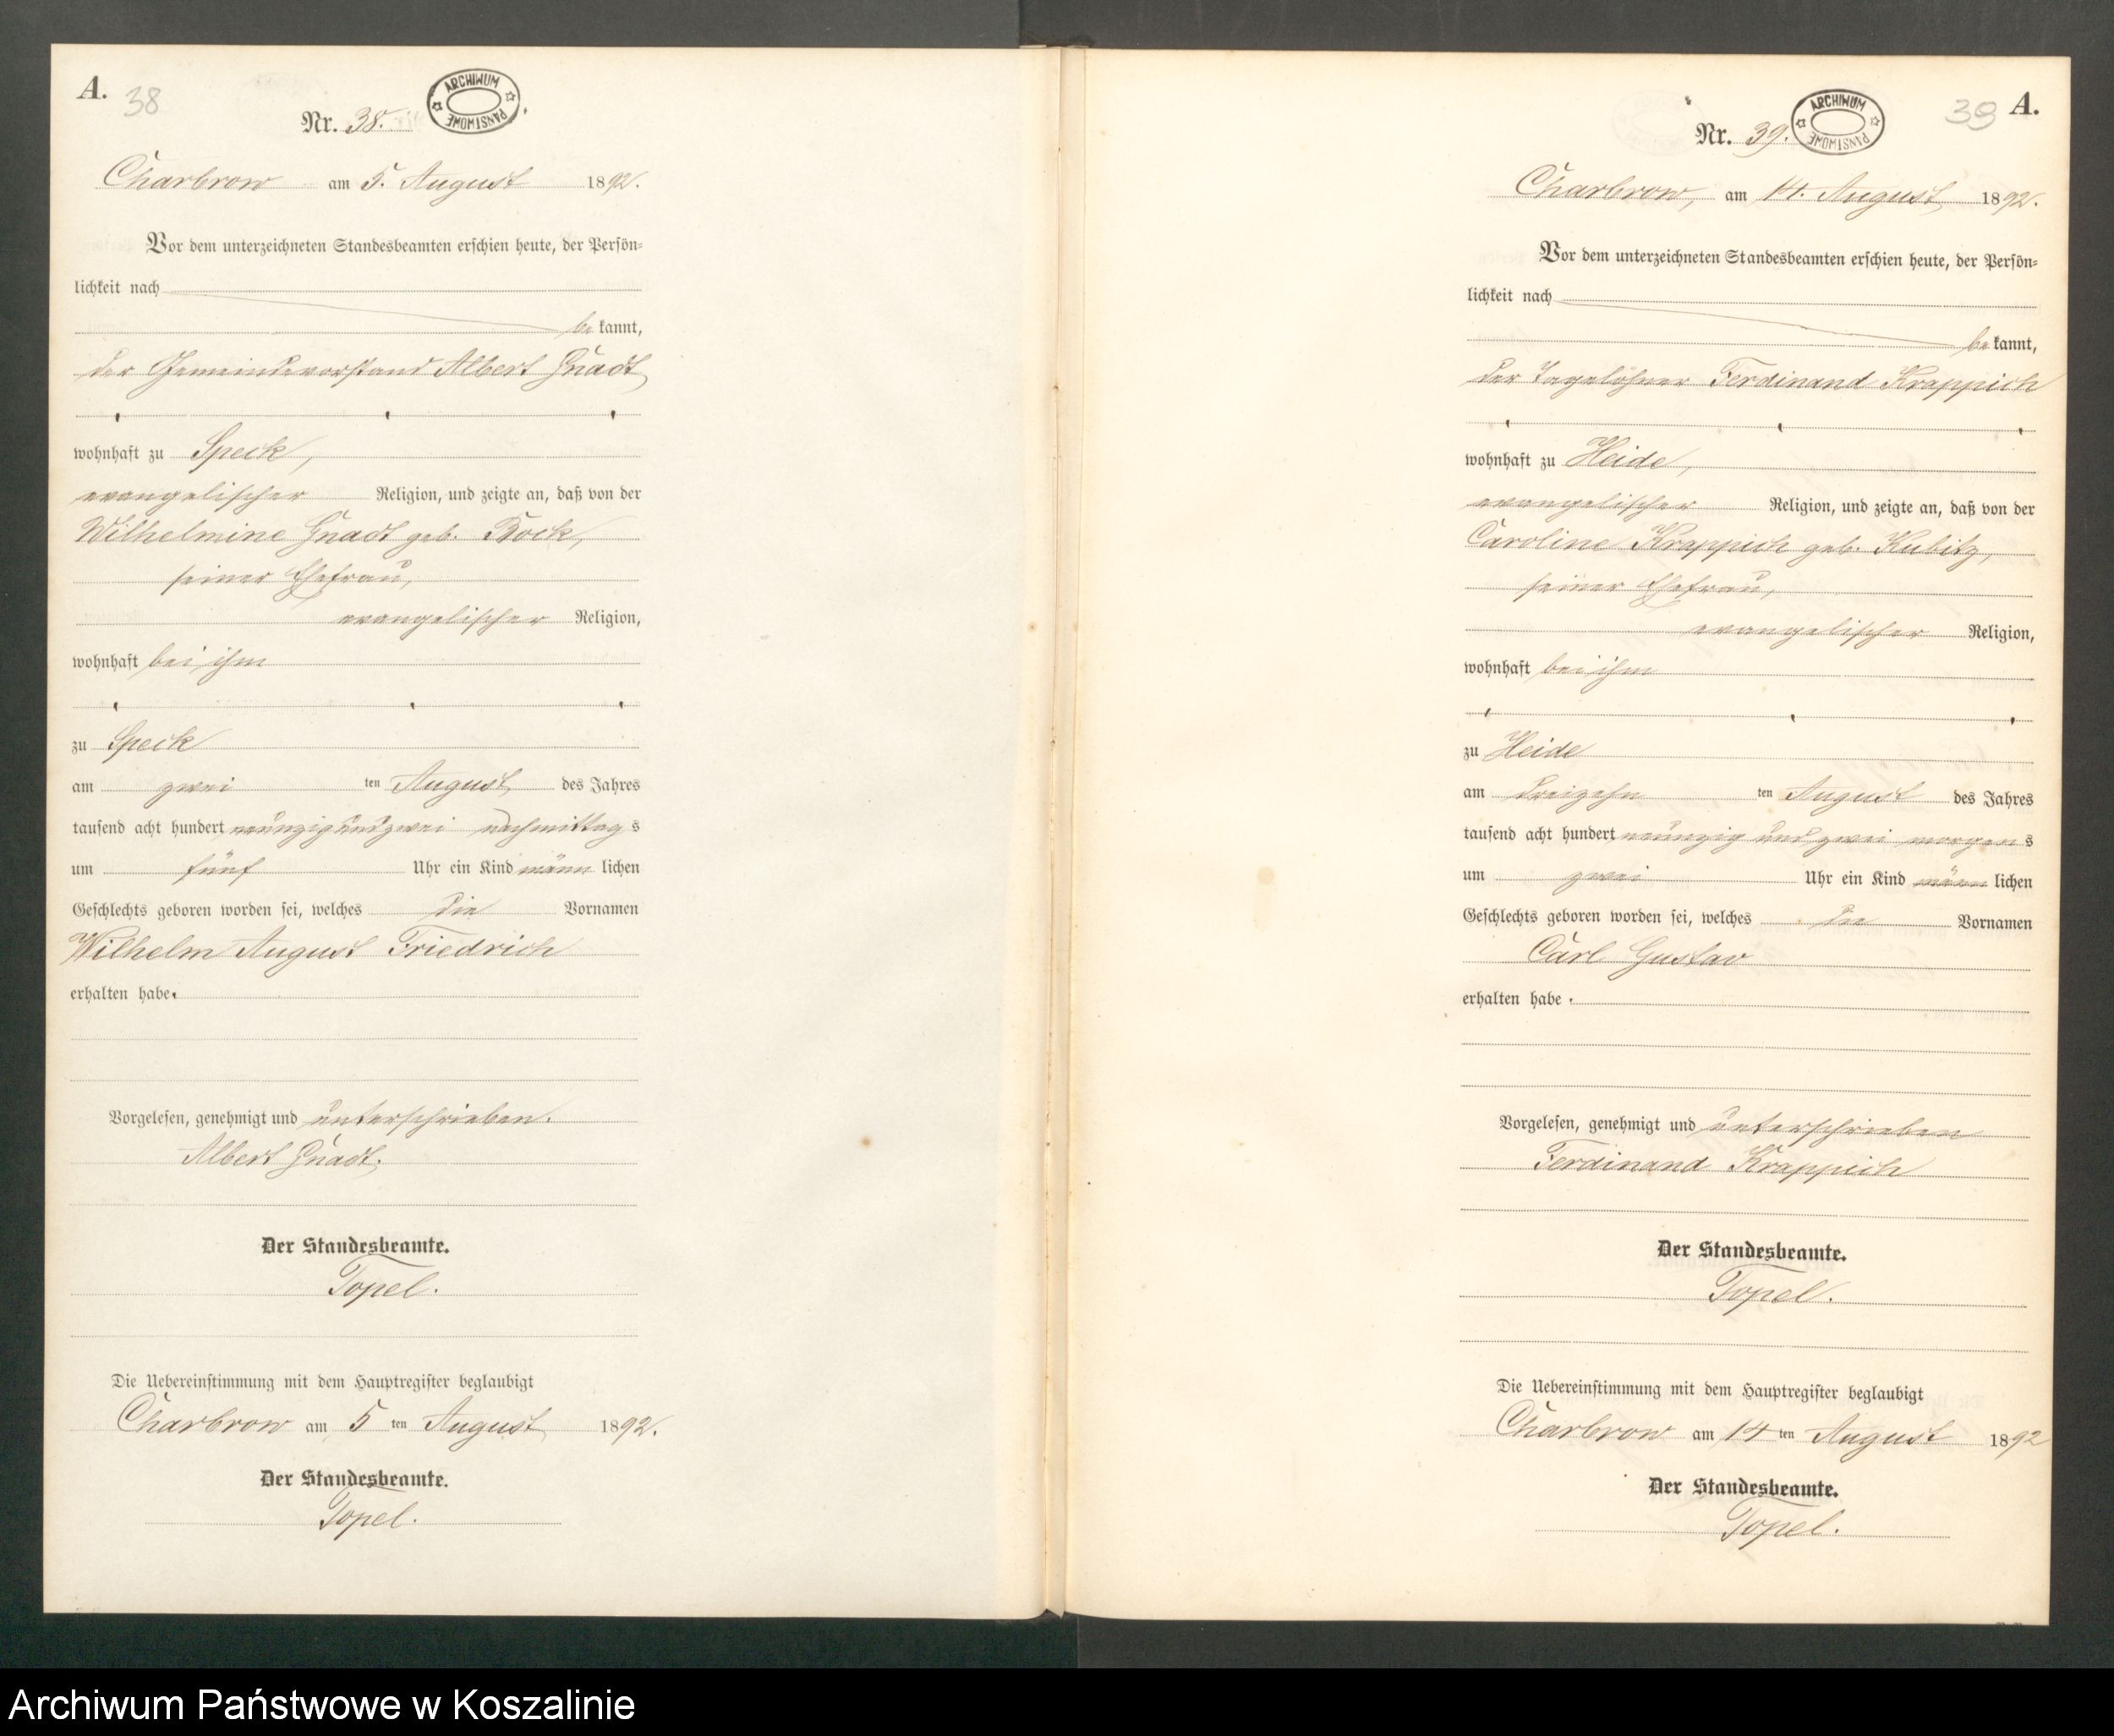 A.
38
Nr. 38.
ARCHIWUM PAŃSTWOWE
Charbrow am 5. August 1892.
Vor dem unterzeichneten Standesbeamten erschien heute, der Persön-
lichkeit nach
be kannt,
der Gemeindevorstand Albert Gnadt
wohnhaft zu Speck,
evangelischer Religion, und zeigte an, daß von der
Wilhelmine Gnadt geb. Bock,
seiner Ehefrau,
evangelischer Religion,
wohnhaft bei ihm
zu Speck
am zwei ten August des Jahres
tausend acht hundert neunzig und zwei nachmittag s
um fünf Uhr ein Kind männ lichen
Geschlechts geboren worden sei, welches die Vornamen
Wilhelm August Friedrich
erhalten habe.
Vorgelesen, genehmigt und unterschrieben.
Albert Gnadt.
Der Standesbeamte.
Topel.
Die Uebereinstimmung mit dem Hauptregister beglaubigt
Charbrow am 5 ten August 1892.
Der Standesbeamte.
Topel.
39 A.
Nr. 39.
ARCHIWUM PAŃSTWOWE
Charbrow, am 14. August 1892.
Vor dem unterzeichneten Standesbeamten erschien heute, der Persön-
lichkeit nach
be kannt,
der Tagelöhner Ferdinand Krappich
wohnhaft zu Heide,
evangelischer Religion, und zeigte an, daß von der
Caroline Krappich geb. Kubitz,
seiner Ehefrau,
evangelischer Religion,
wohnhaft bei ihm
zu Heide
am dreizehn ten August des Jahres
tausend acht hundert neunzig und zwei morgen s
um zwei Uhr ein Kind männ lichen
Geschlechts geboren worden sei, welches die Vornamen
Carl Gustav
erhalten habe.
Vorgelesen, genehmigt und unterschrieben
Ferdinand Krappich
Der Standesbeamte.
Topel.
Die Uebereinstimmung mit dem Hauptregister beglaubigt
Charbrow am 14 ten August 1892
Der Standesbeamte.
Topel.
Archiwum Państwowe w Koszalinie